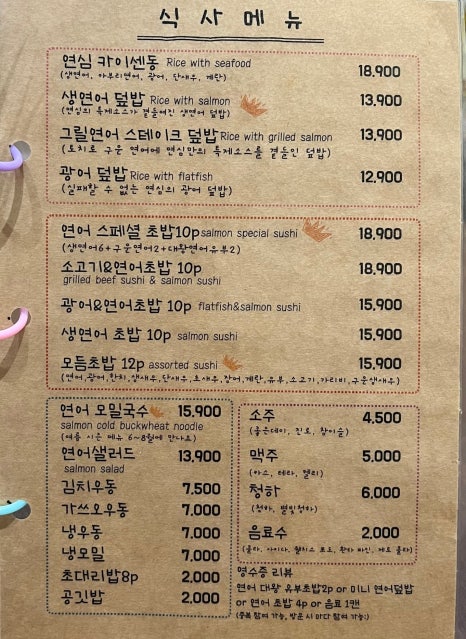 식사메뉴
연심 카이센동 Rice with seafood 18,900
(생연어, 아부리연어, 광어, 단새우, 계란)
생연어 덮밥 Rice with salmon 13,900
(연심의 특제소스가 곁들여진 생연어 덮밥)
그릴연어 스테이크 덮밥 Rice with grilled salmon 13,900
(토치로 구운 연어에 연심만의 특제소스를 곁들인 덮밥)
광어 덮밥 Rice with flatfish 12,900
(실패할 수 없는 연심의 광어 덮밥)
연어 스페셜 초밥10p salmon special sushi 18,900
(생연어6+구운연어2+대왕연어유부2)
소고기&연어초밥 10p 18,900
grilled beef sushi & salmon sushi
광어&연어초밥 10p flatfish&salmon sushi 15,900
생연어 초밥 10p salmon sushi 15,900
모듬초밥 12p assorted sushi 15,900
(연어,광어,한치,생새우,단새우,초새우,장어,계란,유부,소고기,가리비,구운생새우)
연어 모밀국수 15,900
salmon cold buckwheat noodle
(여름 시즌 메뉴 6~8월에 만나요)
연어샐러드 13,900
salmon salad
김치우동 7,500
가쓰오우동 7,000
냉우동 7,000
냉모밀 7,000
초대리밥8p 2,000
공깃밥 2,000
소주 4,500
(좋은데이, 진로, 참이슬)
맥주 5,000
(카스, 테라, 켈리)
청하 6,000
(청하, 별빛청하)
음료수 2,000
영수증 리뷰
연어 대왕 유부초밥2p or 미니 연어덮밥
or 연어 초밥 4p or 음료 1캔
(중복 참여 가능, 방문 시 마다 참여 가능:)